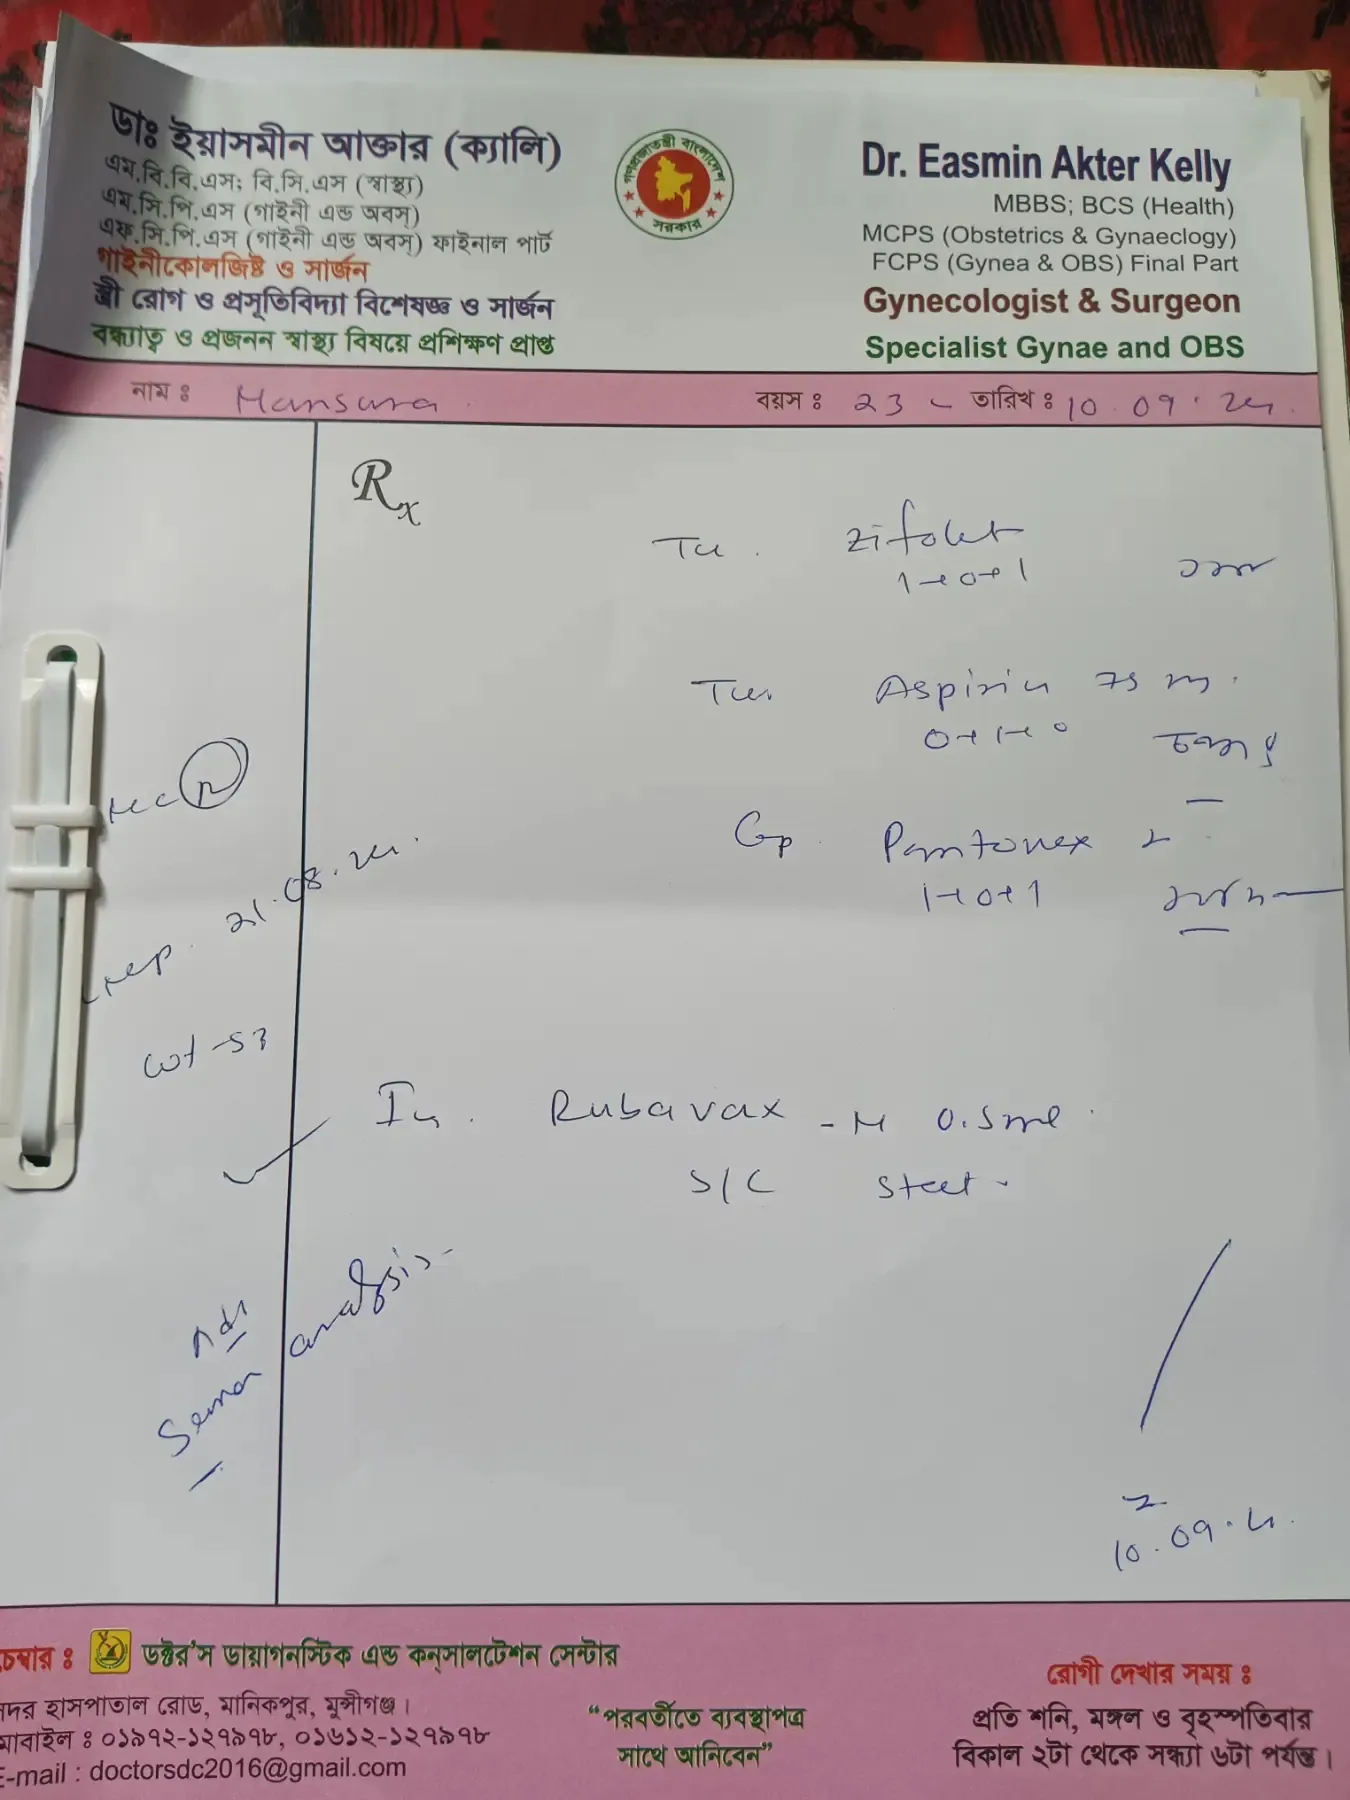 ডাঃ ইয়াসমীন আক্তার (ক্যালি)
এম.বি.বি.এস; বি.সি.এস (স্বাস্থ্য)
এম.সি.পি.এস (গাইনী এন্ড অবস্)
এফ.সি.পি.এস (গাইনী এন্ড অবস্) ফাইনাল পার্ট
গাইনীকোলজিষ্ট ও সার্জন
স্ত্রী রোগ ও প্রসূতিবিদ্যা বিশেষজ্ঞ ও সার্জন
বন্ধ্যাত্ব ও প্রজনন স্বাস্থ্য বিষয়ে প্রশিক্ষণ প্রাপ্ত
গণপ্রজাতন্ত্রী বাংলাদেশ
সরকার
Dr. Easmin Akter Kelly
MBBS; BCS (Health)
MCPS (Obstetrics & Gynaeclogy)
FCPS (Gynea & OBS) Final Part
Gynecologist & Surgeon
Specialist Gynae and OBS
নাম ঃ Mansura বয়স ঃ 23 তারিখ ঃ 10.09.24
Rx
Zifolet
1+0+1
Aspirin 75 m
0+1+0
Cap Pantonex 2
1+0+1
21.08.24
wt - 53
Inj. Rubavax - M 0.5ml
S/C stat
Adv
Semen analysis
10.09.24
চেম্বার ঃ ডক্টর'স ডায়াগনস্টিক এন্ড কন্সালটেশন সেন্টার
সদর হাসপাতাল রোড, মানিকপুর, মুন্সীগঞ্জ।
মোবাইল ঃ ০১৯৭২-১২৭৯৭৮, ০১৬১২-১২৭৯৭৮
E-mail : doctorsdc2016@gmail.com
“পরবর্তিতে ব্যবস্থাপত্র
সাথে আনিবেন”
রোগী দেখার সময় ঃ
প্রতি শনি, মঙ্গল ও বৃহস্পতিবার
বিকাল ২টা থেকে সন্ধ্যা ৬টা পর্যন্ত।